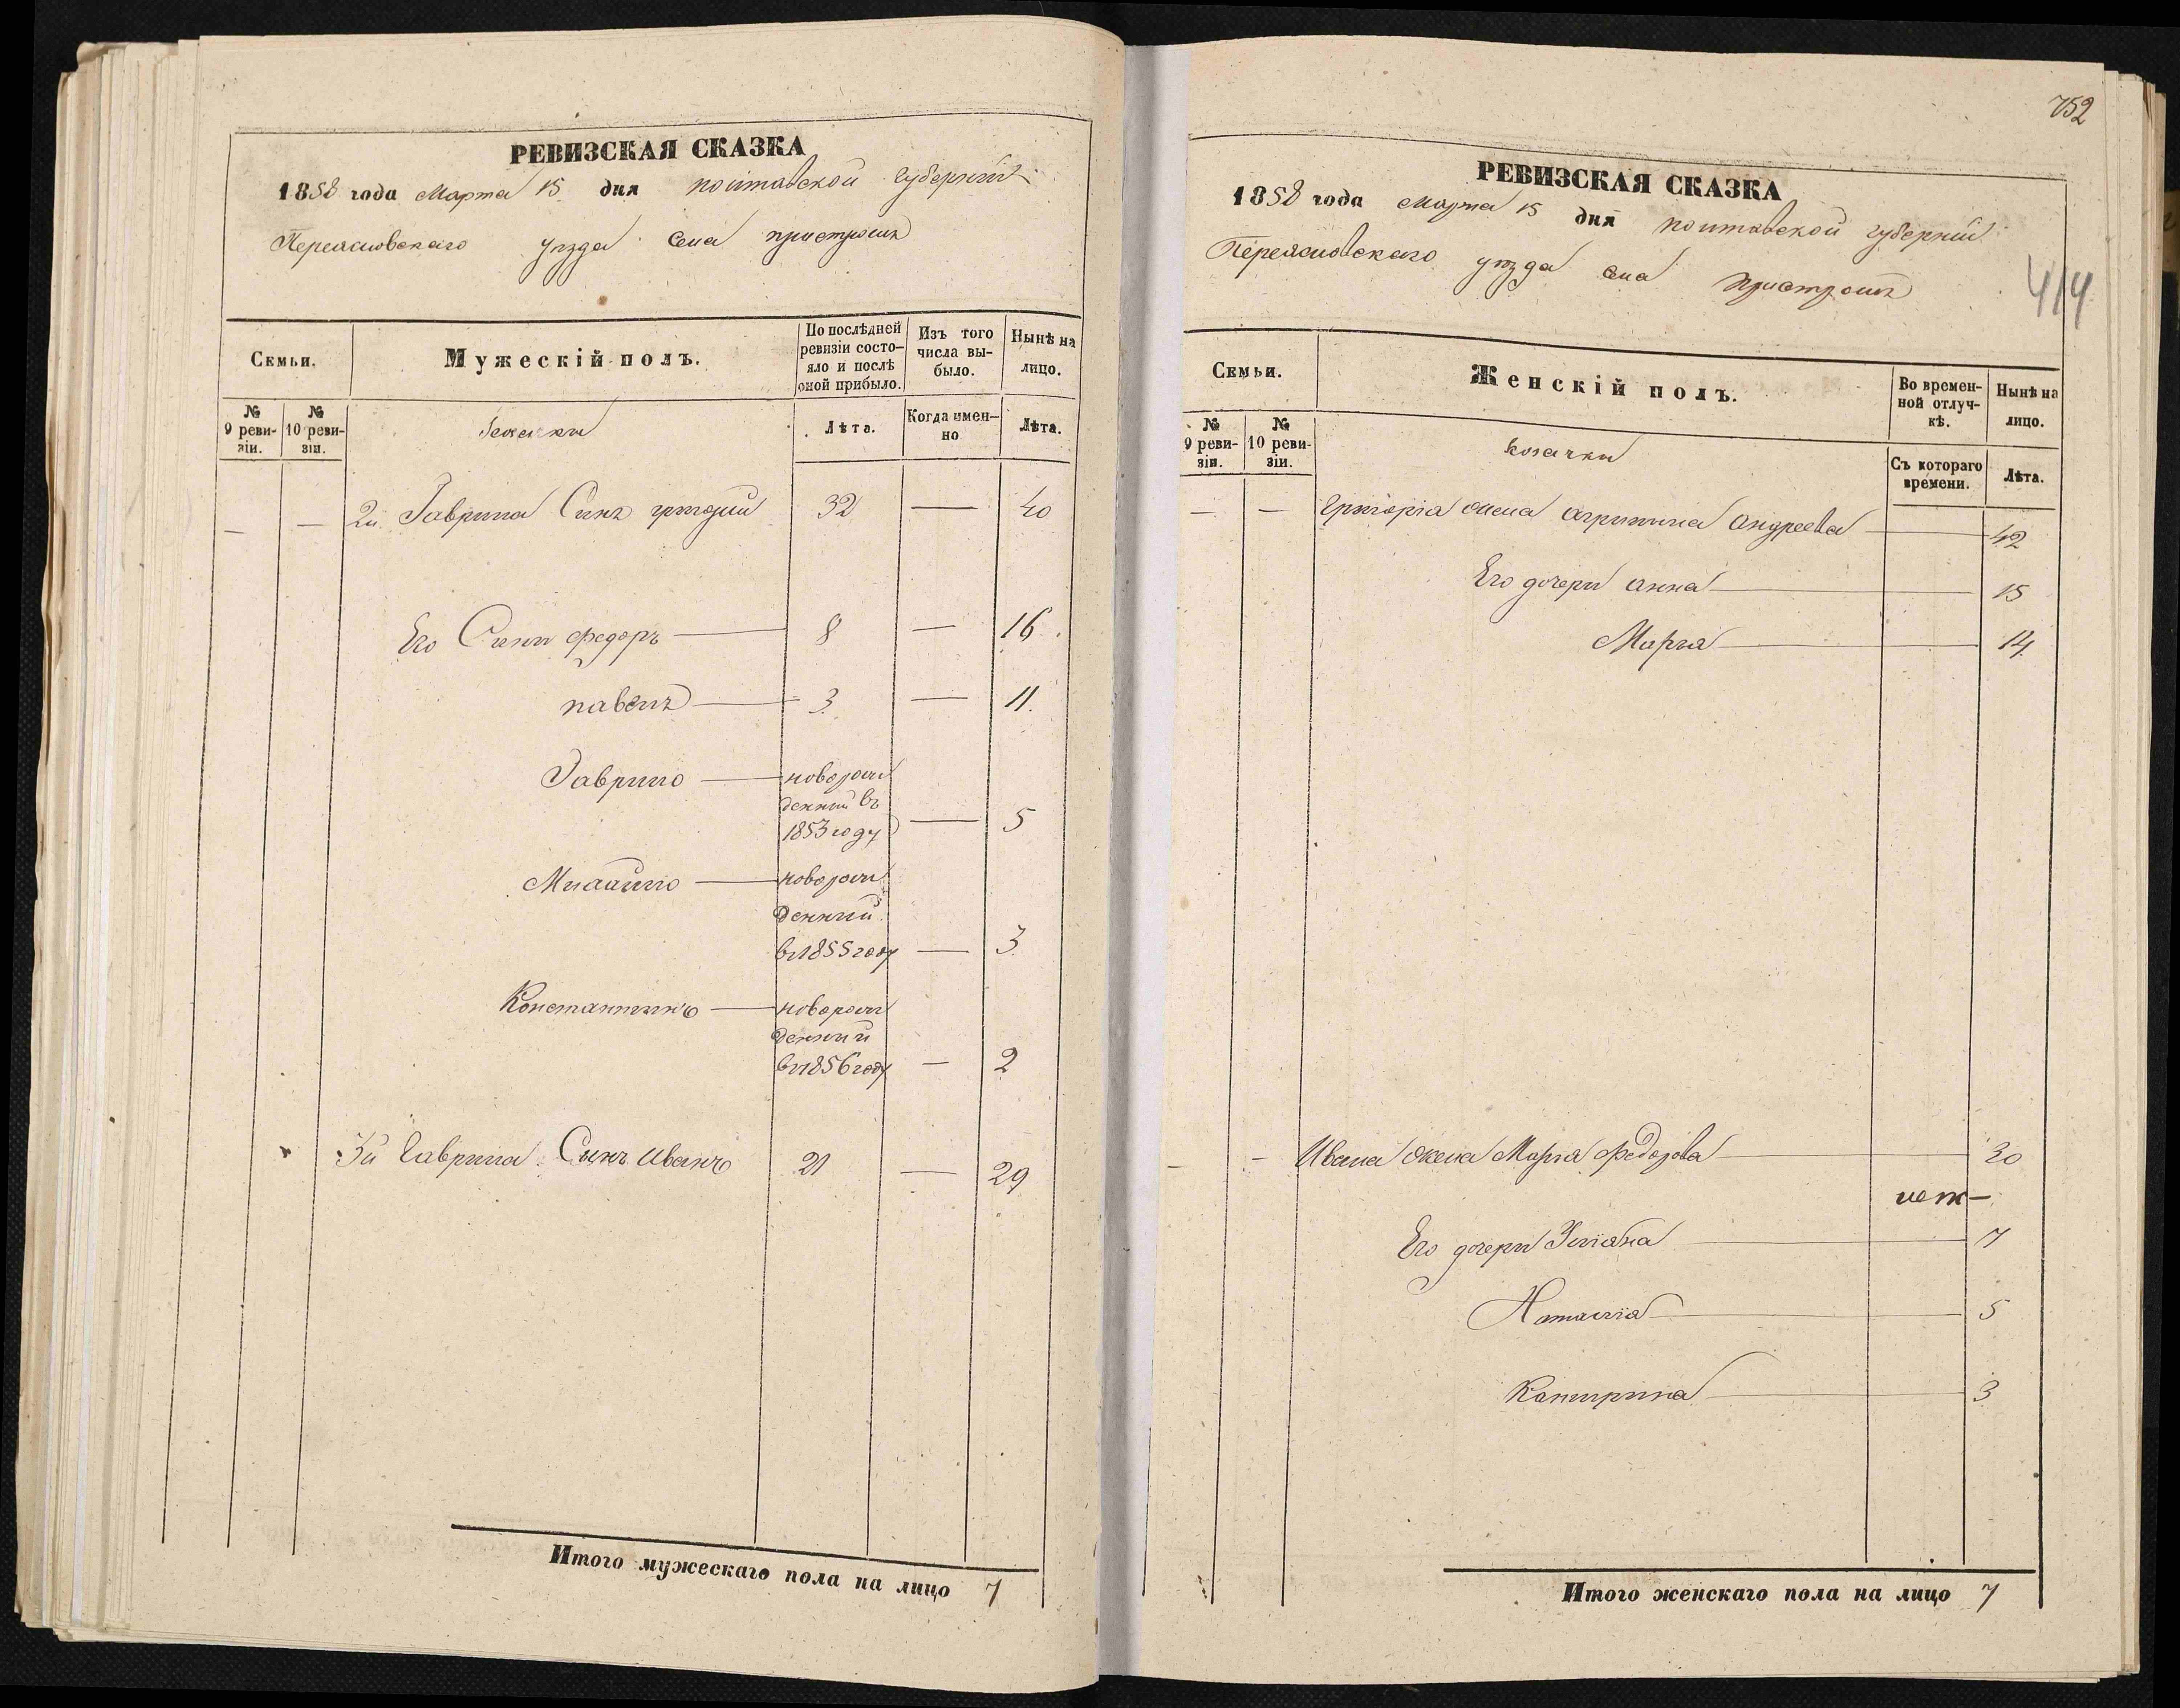 РЕВИЗСКАЯ СКАЗКА
1858 года Марта 15 дня полтавской губерніи
Переясловскаго уѣзда села пристромъ
Семьи.
Мужескій полъ.
По послѣдней ревизіи состояло и послѣ оной прибыло.
Изъ того числа выбыло.
Нынѣ на лицо.
№ 9 ревизіи.
№ 10 ревизіи.
Козачки
Лѣта.
Когда именно
Лѣта.
— — 2й Гаврила Синъ григорий 32 — 40
Его Сини федоръ 8 — 16
павелъ 3 — 11.
Гаврило новорож
денний въ
1853 году — 5
Михайло новорож
денний
въ 1855 году — 3
Константинъ новорож
денний
въ 1856 году — 2
3й Гаврила Сынъ Иванъ 21 — 29
Итого мужескаго пола на лицо 7
752
РЕВИЗСКАЯ СКАЗКА
1858 года Марта 15 дня полтавской губерніи
Переясловскаго уѣзда села пристромъ
414
Семьи.
Женскій полъ.
Во временной отлучкѣ.
Нынѣ на лицо.
№ 9 ревизіи.
№ 10 ревизіи.
козачки
Съ котораго времени.
Лѣта.
— — Григорія жена Агрипина Андреева 42
Его дочери Анна 15
Марья 14
— — Ивана жена Марія Федорова 30
Его дочери Уліяна 7
Наталія 5
Катирина 3
Итого женскаго пола на лицо 7